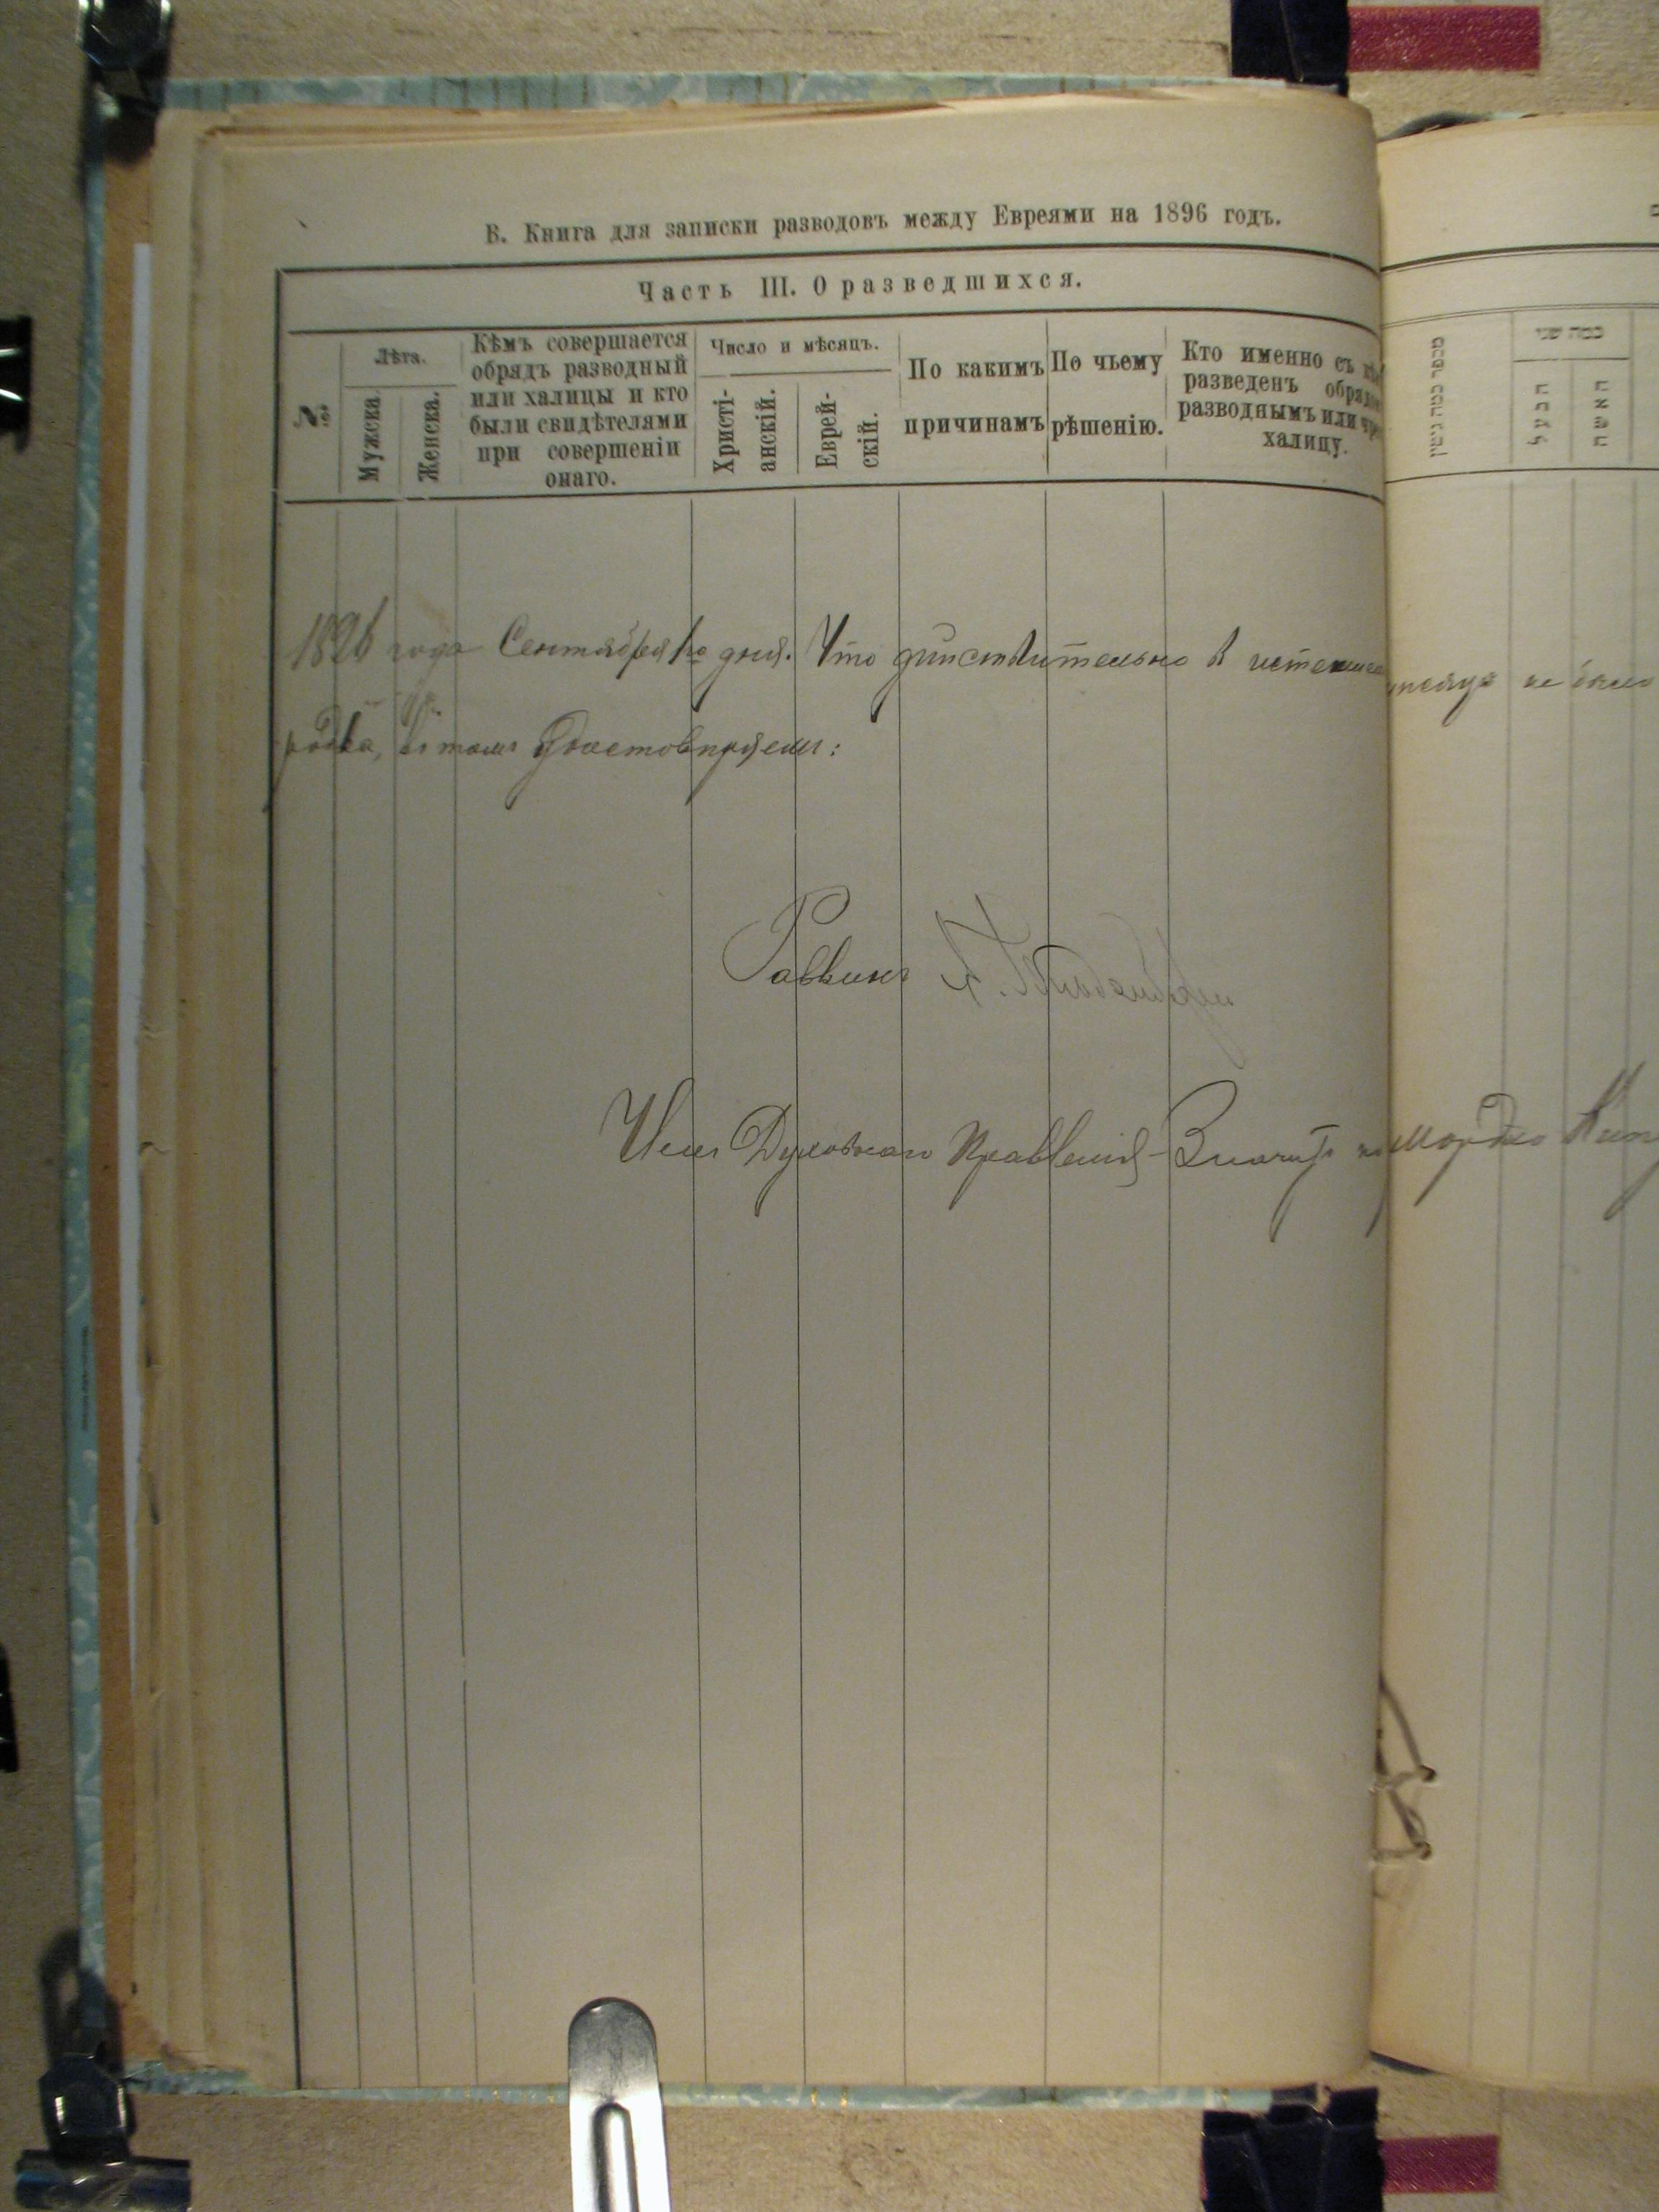 В. Книга для записки разводовъ между Евреями на 1896 годъ.
Часть III. О разведшихся.
№
Лѣта.
Мужска.
Женска.
Кѣмъ совершается
обрядъ разводный
или халицы и кто
были свидѣтелями
при совершеніи
онаго.
Число и мѣсяцъ.
Христі-
анскій.
Еврей-
скій.
По какимъ
причинамъ
По чьему
рѣшенію.
Кто именно съ
разведенъ
разводнымъ или
халицу.
כמה שני
הבעל
האשה
1896 года Сентября 1го дня. Что дѣйствительно в не было
въ томъ удостовѣряемъ:
Раввинъ
Членъ Духовнаго Правленія - Мордко